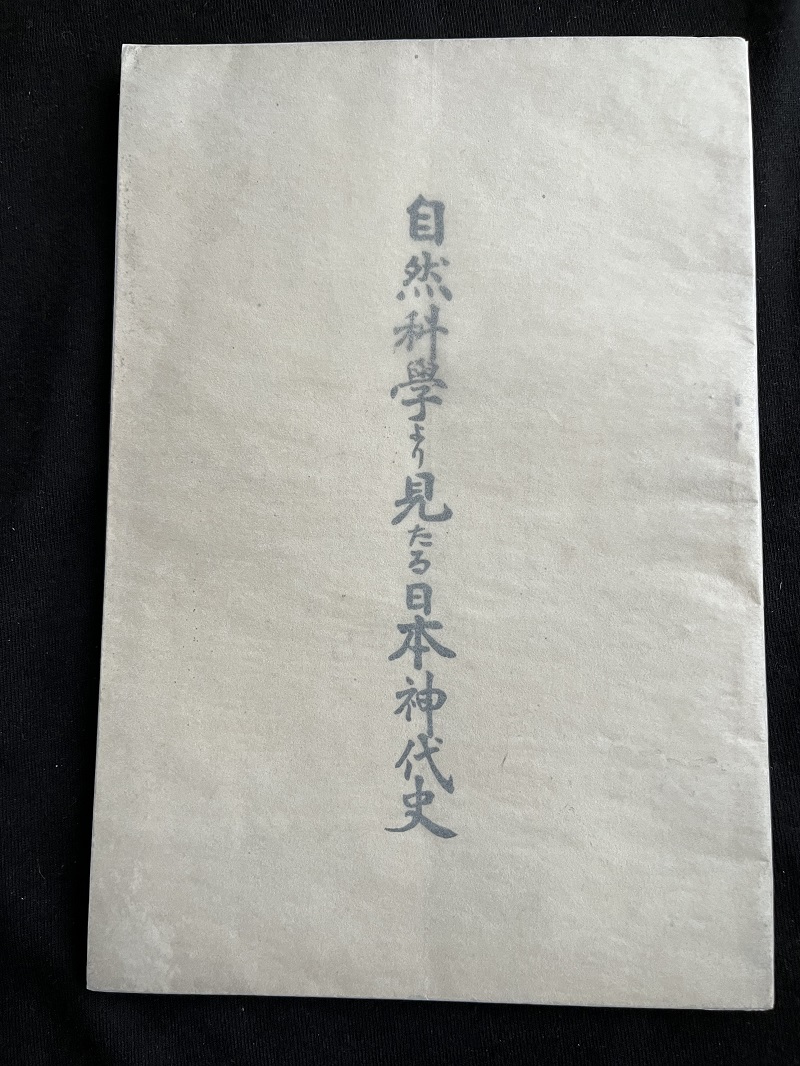 自然科學より見たる日本神代史